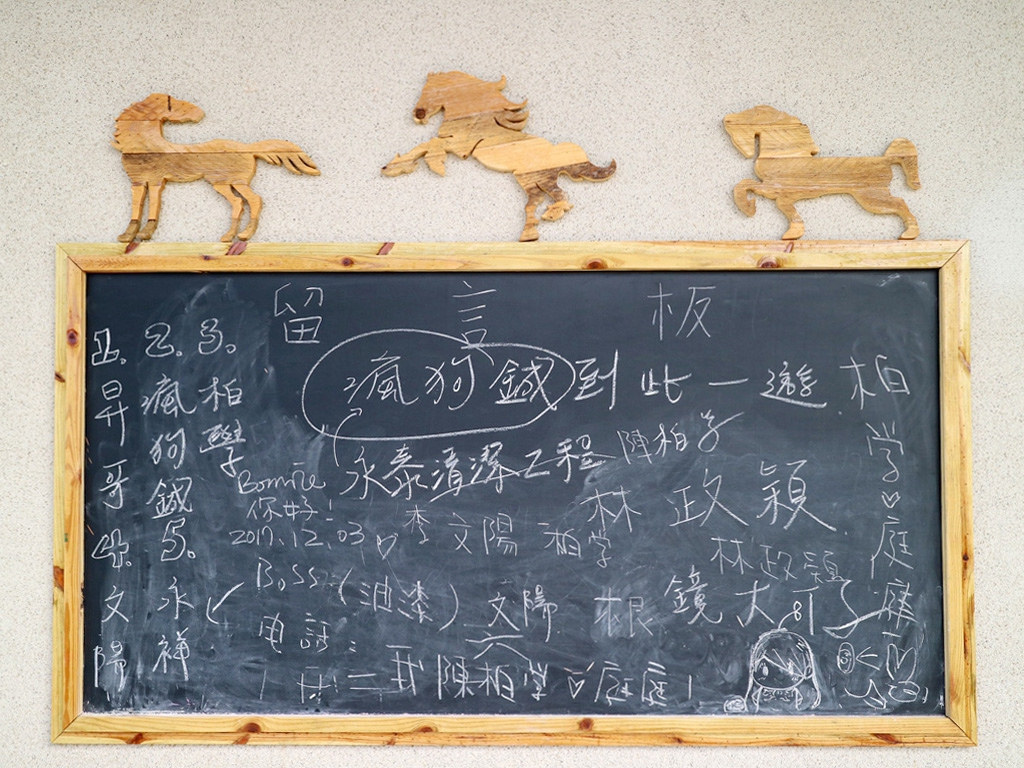 留言板
1. 2. 3.
昇哥
瘋狗鍼
柏學
4. 文陽
5. 永祥
瘋狗鍼到此一遊
永泰清潔工程 陳柏学
Bonnie
你好!
2017.12.03
李文陽 柏学
林政穎
林政穎
Boss (油漆) 文陽
根 鏡 大
电話:
陳柏學♡庭庭
柏学♡庭庭